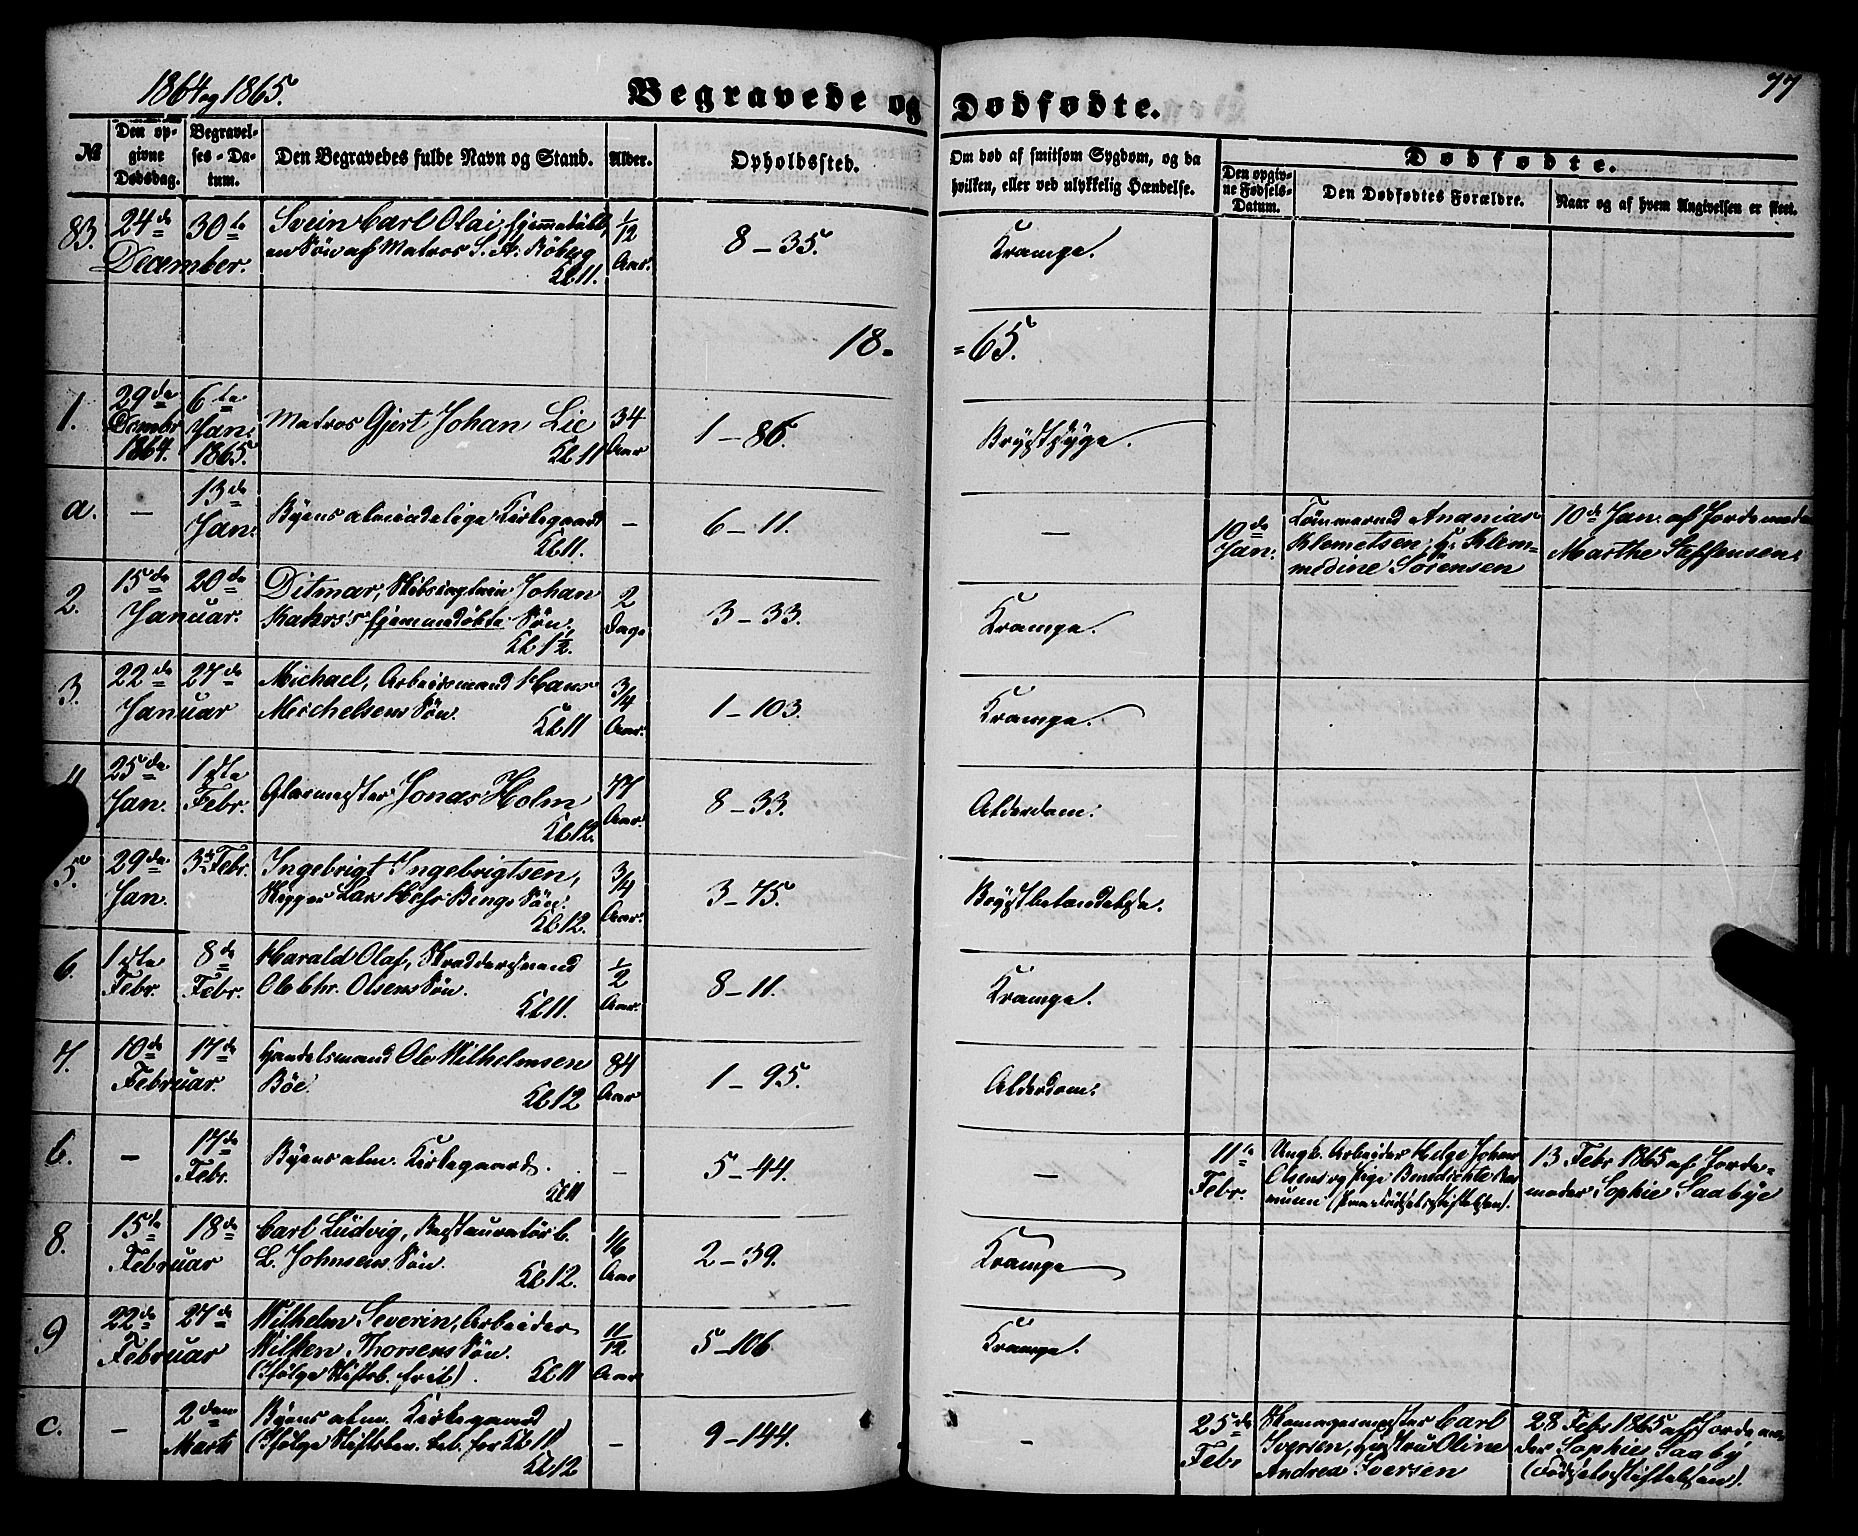 1864 og 1865.
Begravede og Dødfødte.
77
№
Den opgivne Dødsdag.
Begravelses-Datum.
Den Begravedes fulde Navn og Stand.
Alder.
Opholdssted.
Om død af smitsom Sygdom, og da hvilken, eller ved ulykkelig Hændelse.
Dødfødte.
Den opgivne Fødsels-Datum.
Den Dødfødtes Forældre.
Naar og af hvem Angivelsen er skeet.
83. 24de 30te December. Svein Carl Olai, hjemmedøbt,
en Søn af Matros S. A. Röberg
Kl 11. 1/12 Aar. 8–35. Krampe.
18= =65.
1. 29de Decembr 1864. 6te Jan. 1865. Matros Gjert Johan Lie
Kl 11 34 Aar 1–86. Brystsyge.
a. – 13de Jan. Byens almindelige Kirkegaard
Kl 11. – 6–11. – 10de Jan. Tømmermd Ananias
Klemetsen, H. Klem-
medine Sörensen
10de Jan. af Jordemoder
Marthe Steffensen.
2. 15de 20de Januar. Ditmar, Skibscaptein Johan
Kahrs's hjemmedøbte Søn.
Kl 1½. 2 Dage 3–33. Krampe.
3. 22de 27de Januar Michael, Arbeidsmand Hans
Michelsens Søn.
Kl 11 3/4 Aar. 1–103. Krampe.
4. 25de Jan. 1ste Febr. Glasmester Jonas Holm
Kl 12. 77 Aar. 8–33. Alderdom.
5. 29de Jan. 3de Febr. Ingebrigt Ingebrigtsen,
Skipper Lars Søn.
Kl 12. 3/4 Aar. 3–75. Brystbetændelse.
6. 1ste Febr. 8de Febr. Harald Olaf, Skræddersvend
Ole Chr. Olsens Søn.
Kl 11. 1/2 Aar. 8–11. Krampe.
7. 10de 17de Februar. Handelsmand Ole Wilhelmsen
Böe
Kl 12 84 Aar 1–95. Alderdom.
b. – 17de Febr. Byens alm. Kirkegaard.
Kl 11 – 5–44. – 11te Febr. Ungk. Arbeider Helge Johan
Olsen og Pige Benedichte Ras-
muun (Fødselsstiftelsen).
13 Febr 1865 af Jorde-
moder Sophie Saabye
8. 15de 18de Februar Carl Ludvig, Restauratør C.
L. Johnsens Søn.
Kl 12. 1/6 Aar 2–39. Krampe
9 22de 27de Februar Wilhelm Severin, Arbeider
Wilken Thorsens Søn.
(Ifølge Skiftsb. frit). Kl 11 11/12 Aar 5–106 Krampe.
c. – 2den Marts Byens alm. Kirkegaard
(Ifølge bet. for Kl 11)
Kl 12 – 9–144. – 25de Febr Skomagermester Carl
Iversen, Hustru Oline
Andrea Iversen
28 Febr 1865 af Jordemo-
der Sophie Saaby
(Fødselsstiftelsen).